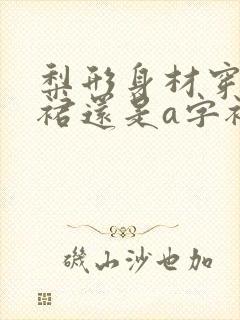 梨形身材穿
裙還是a字裙
磯山沙也加